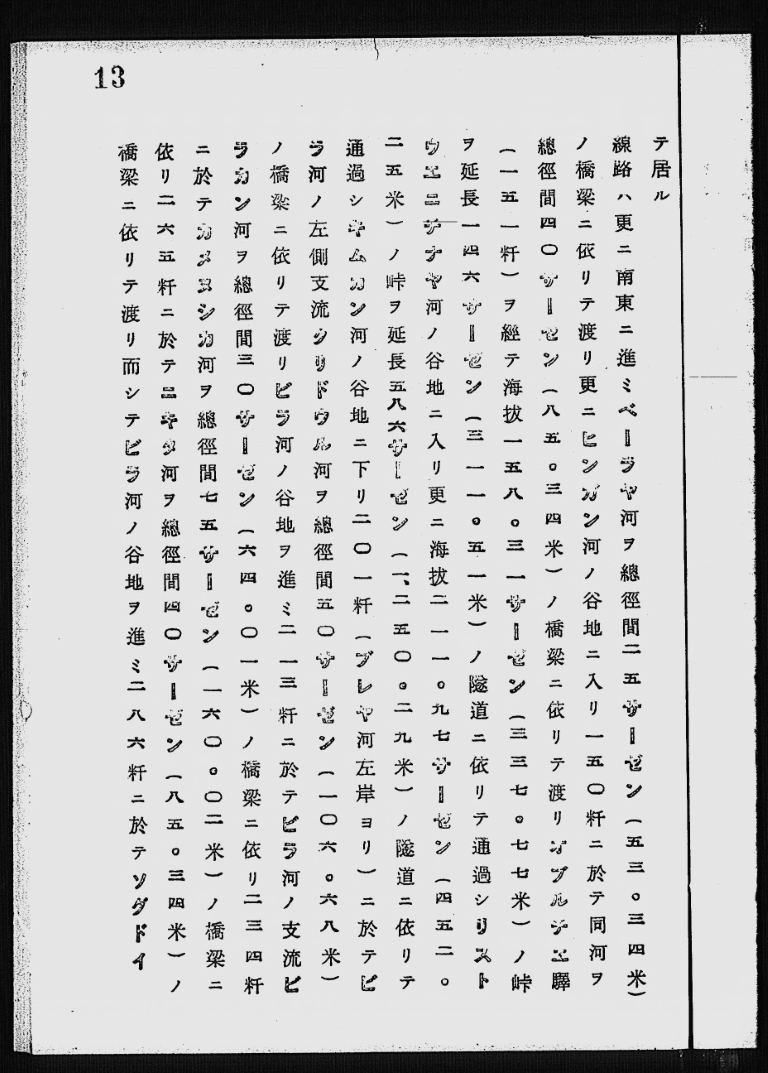 13
テ居ル
線路ハ更ニ南東ニ進ミベーラヤ河ヲ總徑間二五サーゼン(五三。三四米)
ノ橋梁ニ依リテ渡リ更ニヒンガン河ノ谷地ニ入リ一五〇粁ニ於テ同河ヲ
總徑間四〇サーゼン(八五。三四米)ノ橋梁ニ依リテ渡リオブルチエ驛
(一五一粁)ヲ經テ海拔一五八。三一サーゼン(三三七。七七米)ノ峠
ヲ延長一四六サーゼン(三一一。五一米)ノ隧道ニ依リテ通過シリスト
ウエニチナヤ河ノ谷地ニ入リ更ニ海拔二一一。九七サーゼン(四五二。
二五米)ノ峠ヲ延長五八六サーゼン(一、二五〇。二九米)ノ隧道ニ依リテ
通過シキムカン河ノ谷地ニ下リ二〇一粁(ブレヤ河左岸ヨリ)ニ於テビ
ラ河ノ左側支流クリドウル河ヲ總徑間五〇サーゼン(一〇六。六八米)
ノ橋梁ニ依リテ渡リビラ河ノ谷地ヲ進ミ二一三粁ニ於テビラ河ノ支流ビ
ラカン河ヲ總徑間三〇サーゼン(六四。〇一米)ノ橋梁ニ依リ二三四粁
ニ於テカメヌシカ河ヲ總徑間七五サーゼン(一六〇。〇二米)ノ橋梁ニ
依リ二六五粁ニ於テニキタ河ヲ總徑間四〇サーゼン(八五。三四米)ノ
橋梁ニ依リテ渡リ而シテビラ河ノ谷地ヲ進ミ二八六粁ニ於テソグドイ